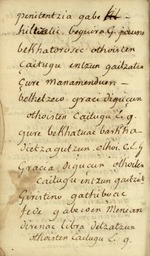 penitentzia gabe hil
hiltzetic, beguira G. jauna
bekhatorosec othoisten
caitugu entzun gaitzatzu
Gure manamenduen
bethetzeco gracia diguçun
othoisten Caitugu E. g.
gure bekhatuac barkha
dietzagutzun othoi. C. E. g
Gracia diguçun othoizten
caitugu entzun gaitzatzu
Guristino gathibuac
fede gabecoen menean
direnac libra detzatzun
othoisten Caitugu E. g.